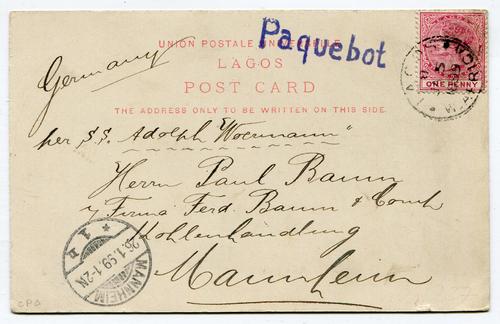 Paquebot
UNION POSTALE UNIVERSELLE
LAGOS
POST CARD
THE ADDRESS ONLY TO BE WRITTEN ON THIS SIDE.
ONE PENNY
LAGOS
W. AFRICA
Germany
per S.S. "Adolph Woermann"
Herrn Paul Baum
Firma Ferd. Baum & Comp
Kohlenhandlung
Mannheim
MANNHEIM
26.1.99.1-2N
* 1 b
CPA